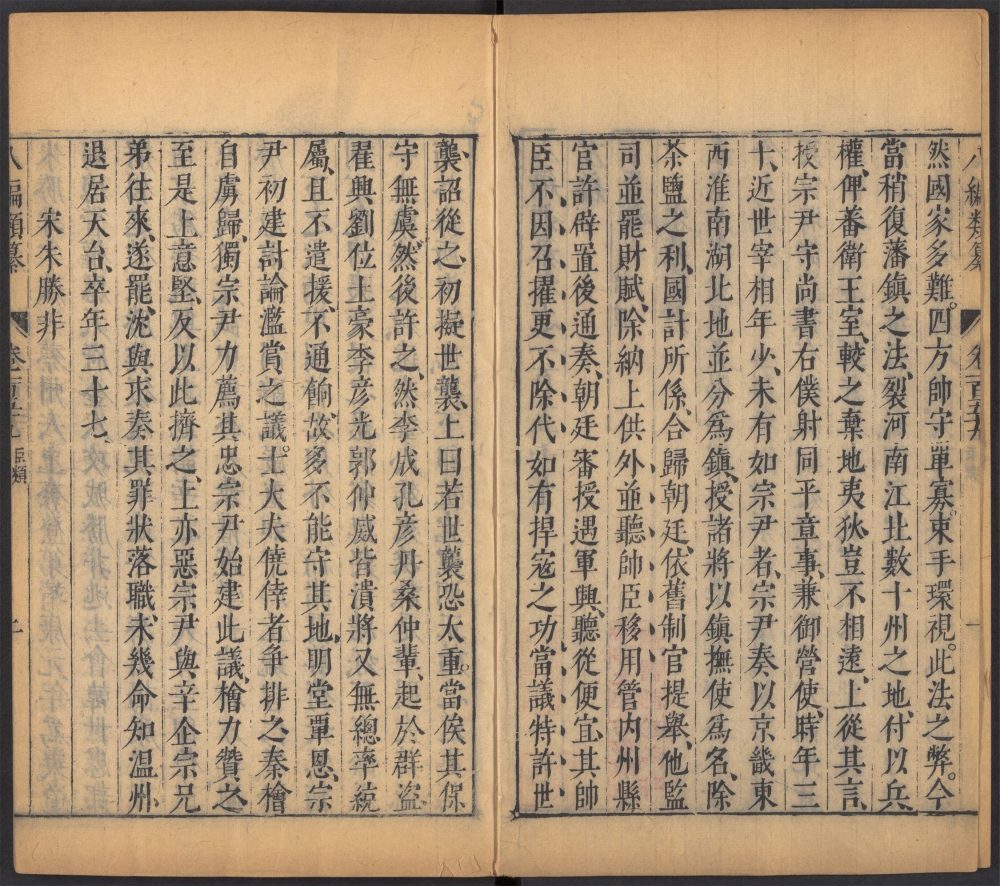 八編類纂
然國家多難。四方帥守單寡。束手環視。此法之弊。今
當稍復藩鎮之法、裂河南江北數十州之地、付以兵
權、俾蕃衛王室、較之棄地夷狄、豈不相遠、上從其言、
授宗尹守尚書右僕射同平章事、兼御營使、時年三
十、近世宰相年少、未有如宗尹者、宗尹奏以京畿東
西淮南湖北地並分爲鎮、授諸將以鎮撫使爲名、除
茶鹽之利、國計所係、合歸朝廷、依舊制官提舉、他監
司並罷財賦、除納上供外、並聽帥臣移用管內州縣
官許辟置後通奏、朝廷審授遇軍興、聽從便宜、其帥
臣不因召擢更不除代、如有捍寇之功、當議特許世
襲、詔從之、初擬世襲、上曰若世襲恐太重。當俟其保
守無虞、然後許之、然李成孔彥丹桑仲輩、起於群盜
翟興劉位土豪李彥光郭仲威皆潰將又無總率統
屬、且不遣援、不通餉、故多不能守其地、明堂覃恩、宗
尹初建討論濫賞之議。士大夫僥倖者爭排之、秦檜
自虜歸、獨宗尹力薦其忠、宗尹始建此議、檜力贊之
至是上意堅、反以此擠之、上亦惡宗尹與辛企宗兄
弟往來、遂罷、沈與求奏其罪狀落職、未幾命知溫州、
退居天台、卒年三十七、
宋朱勝非
八編類纂
臣類